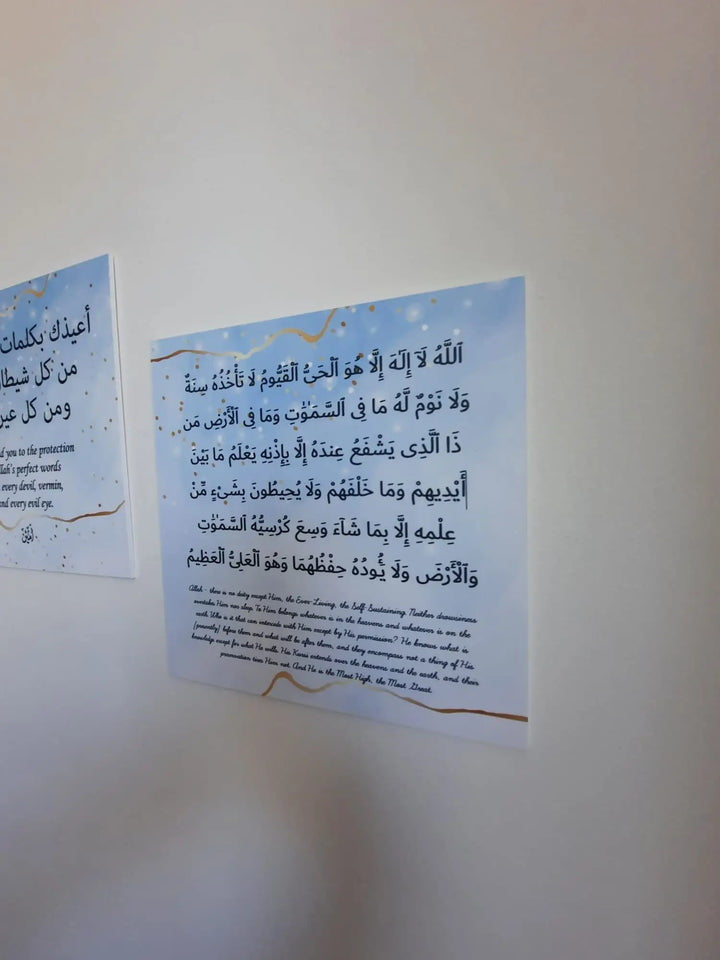 أعيذك بكلمات
من كل
ومن كل عين
d you to the protection
llah's perfect words
every devil, vermin,
nd every evil eye.
اَللَّهُ لَآ إِلَـٰهَ إِلَّا هُوَ ٱلْحَىُّ ٱلْقَيُّومُ لَا تَأْخُذُهُۥ سِنَةٌ
وَلَا نَوْمٌ لَّهُۥ مَا فِى ٱلسَّمَـٰوَٰتِ وَمَا فِى ٱلْأَرْضِ مَن
ذَا ٱلَّذِى يَشْفَعُ عِندَهُۥٓ إِلَّا بِإِذْنِهِۦ يَعْلَمُ مَا بَيْنَ
أَيْدِيهِمْ وَمَا خَلْفَهُمْ وَلَا يُحِيطُونَ بِشَىْءٍ مِّنْ
عِلْمِهِۦٓ إِلَّا بِمَا شَآءَ وَسِعَ كُرْسِيُّهُ ٱلسَّمَـٰوَٰتِ
وَٱلْأَرْضَ وَلَا يَـُٔودُهُۥ حِفْظُهُمَا وَهُوَ ٱلْعَلِىُّ ٱلْعَظِيمُ
Allah - there is no deity except Him, the Ever-Living, the Self-Sustaining. Neither drowsiness
overtakes Him nor sleep. To Him belongs whatever is in the heavens and whatever is on the
earth. Who is it that can intercede with Him except by His permission? He knows what is
(presently) before them and what will be after them, and they encompass not a thing of His
knowledge except for what He wills. His Kursi extends over the heavens and the earth, and their
preservation tires Him not. And He is the Most High, the Most Great.